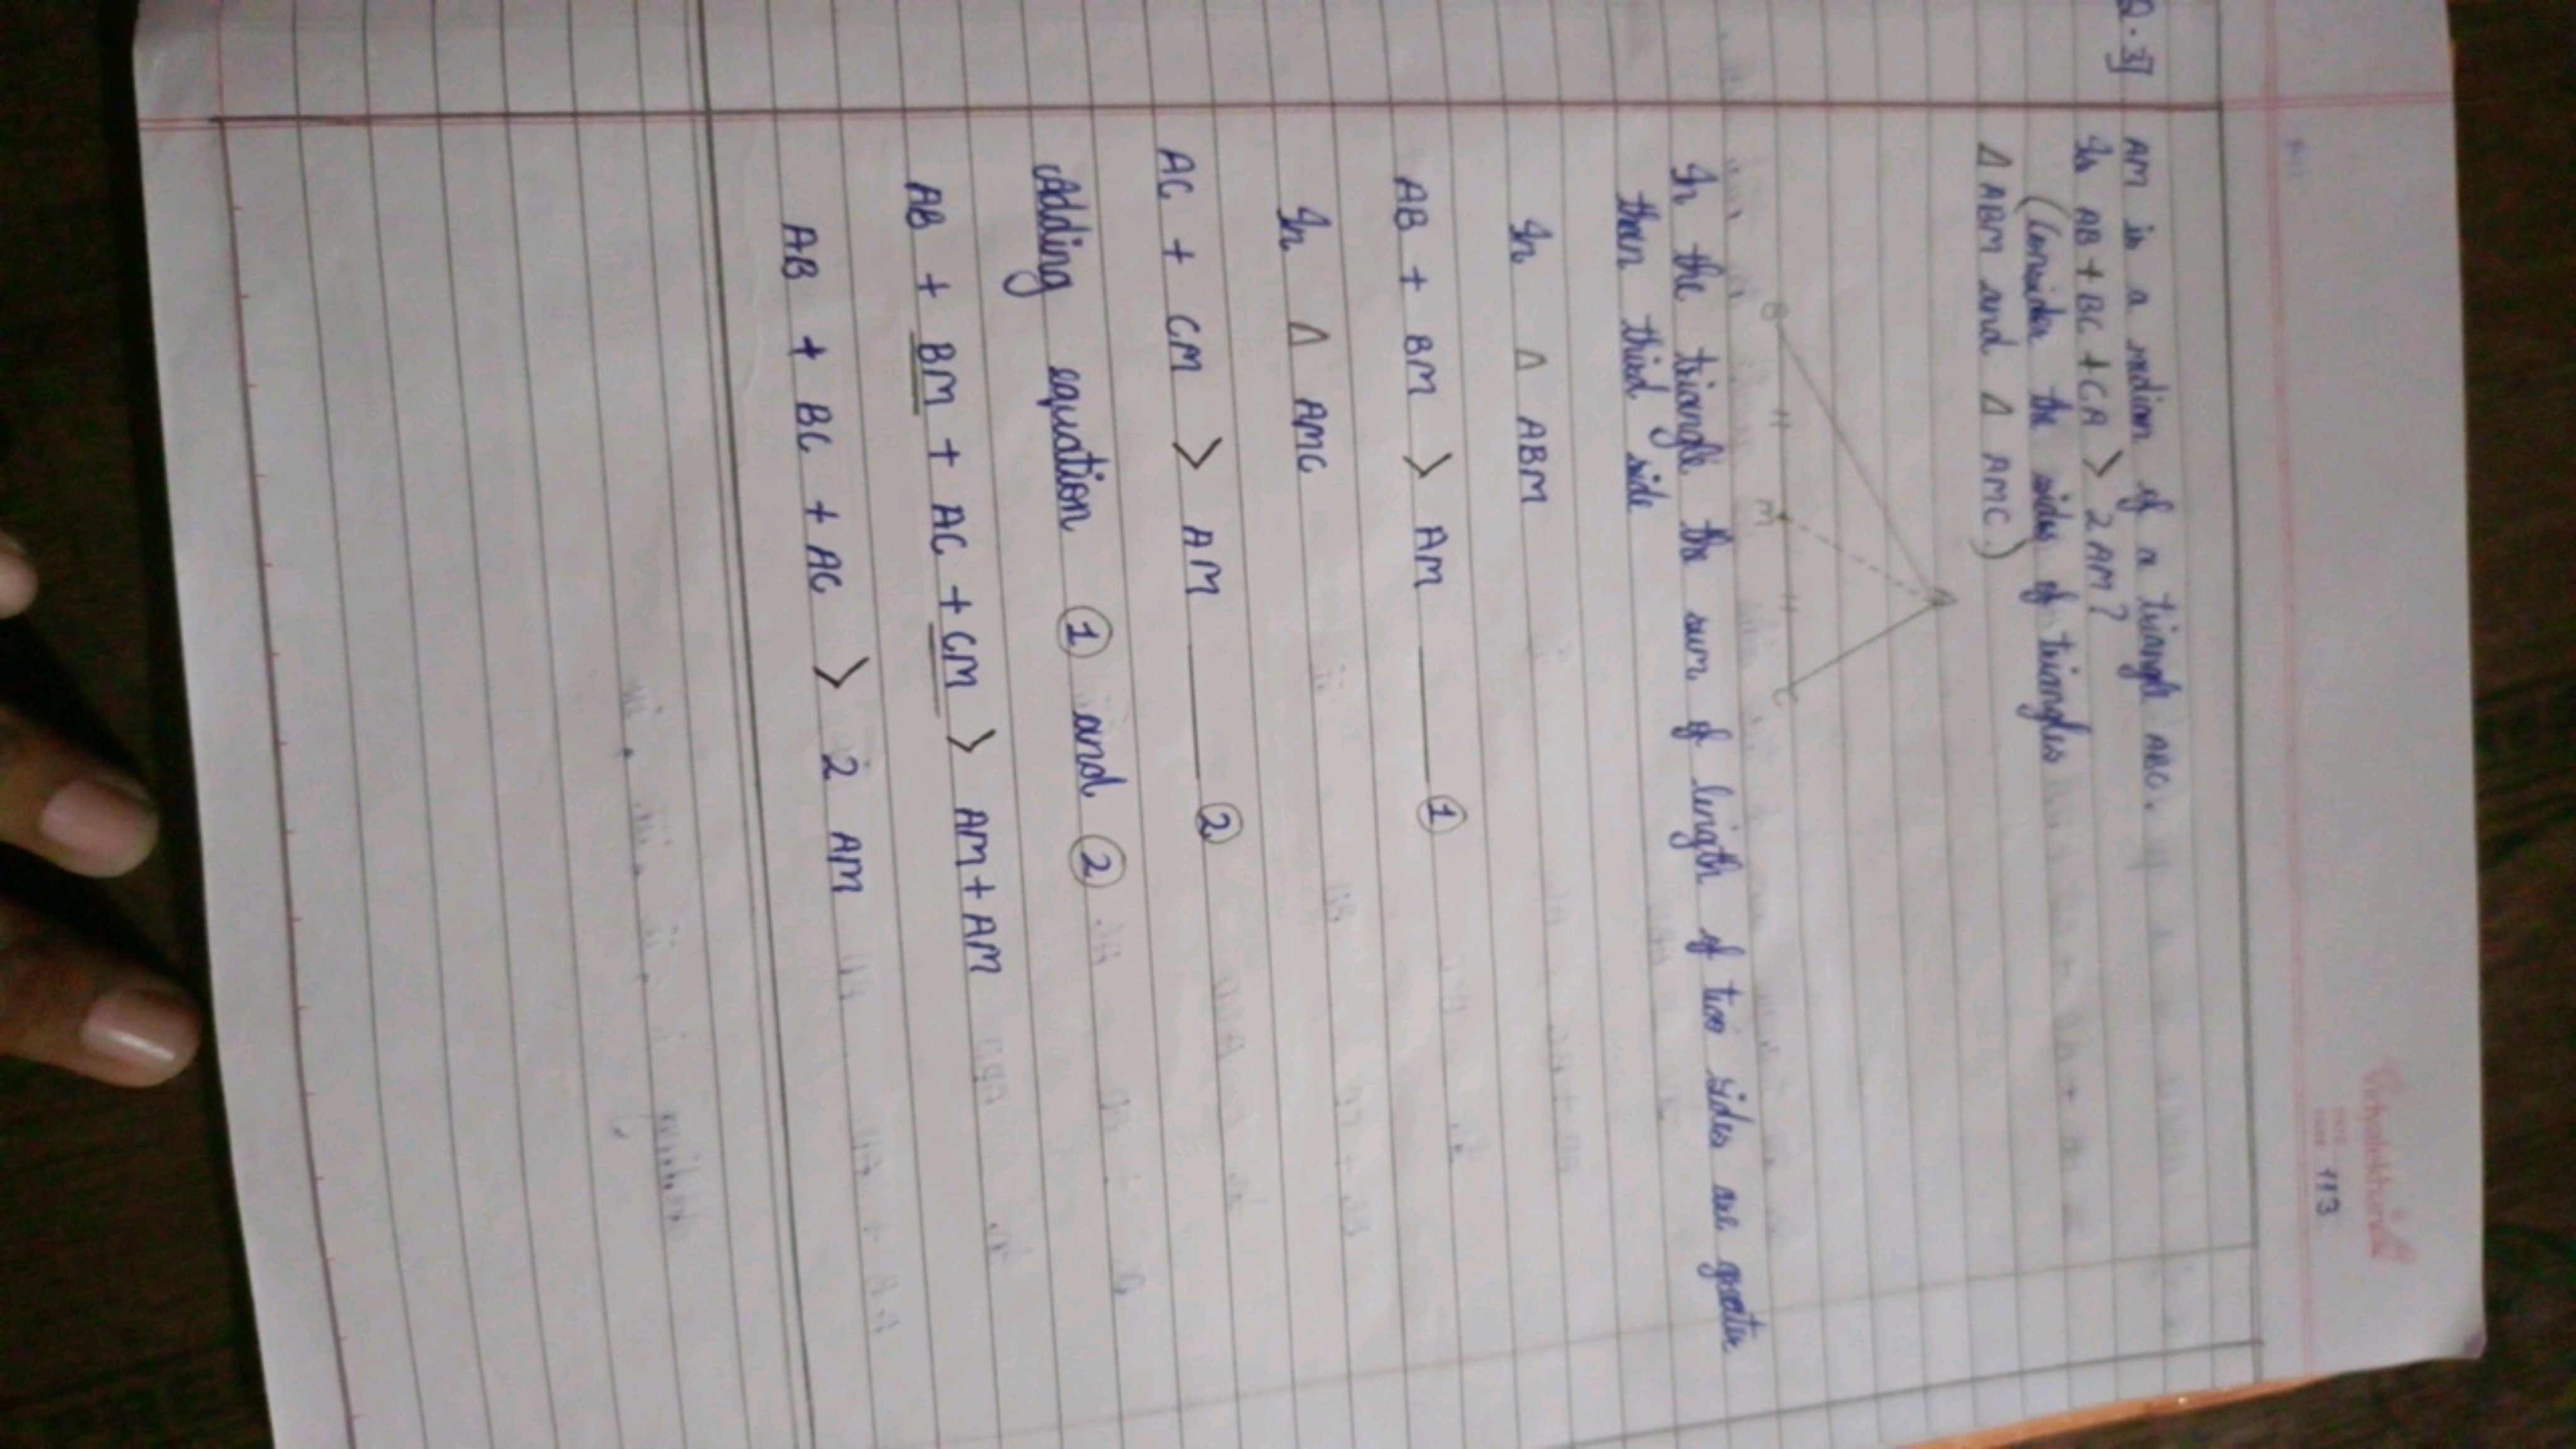 113
Q.3] AM is a median of a triangle ABC.
Is AB + BC + CA > 2 AM?
(Consider the sides of triangles
Δ ABM and Δ AMC.)
A
B M C
In the triangle the sum of length of two sides are greater
than third side
In Δ ABM
AB + BM > AM ①
In Δ AMC
AC + CM > AM ②
Adding equation ① and ②
AB + BM + AC + CM > AM + AM
AB + BC + AC > 2 AM